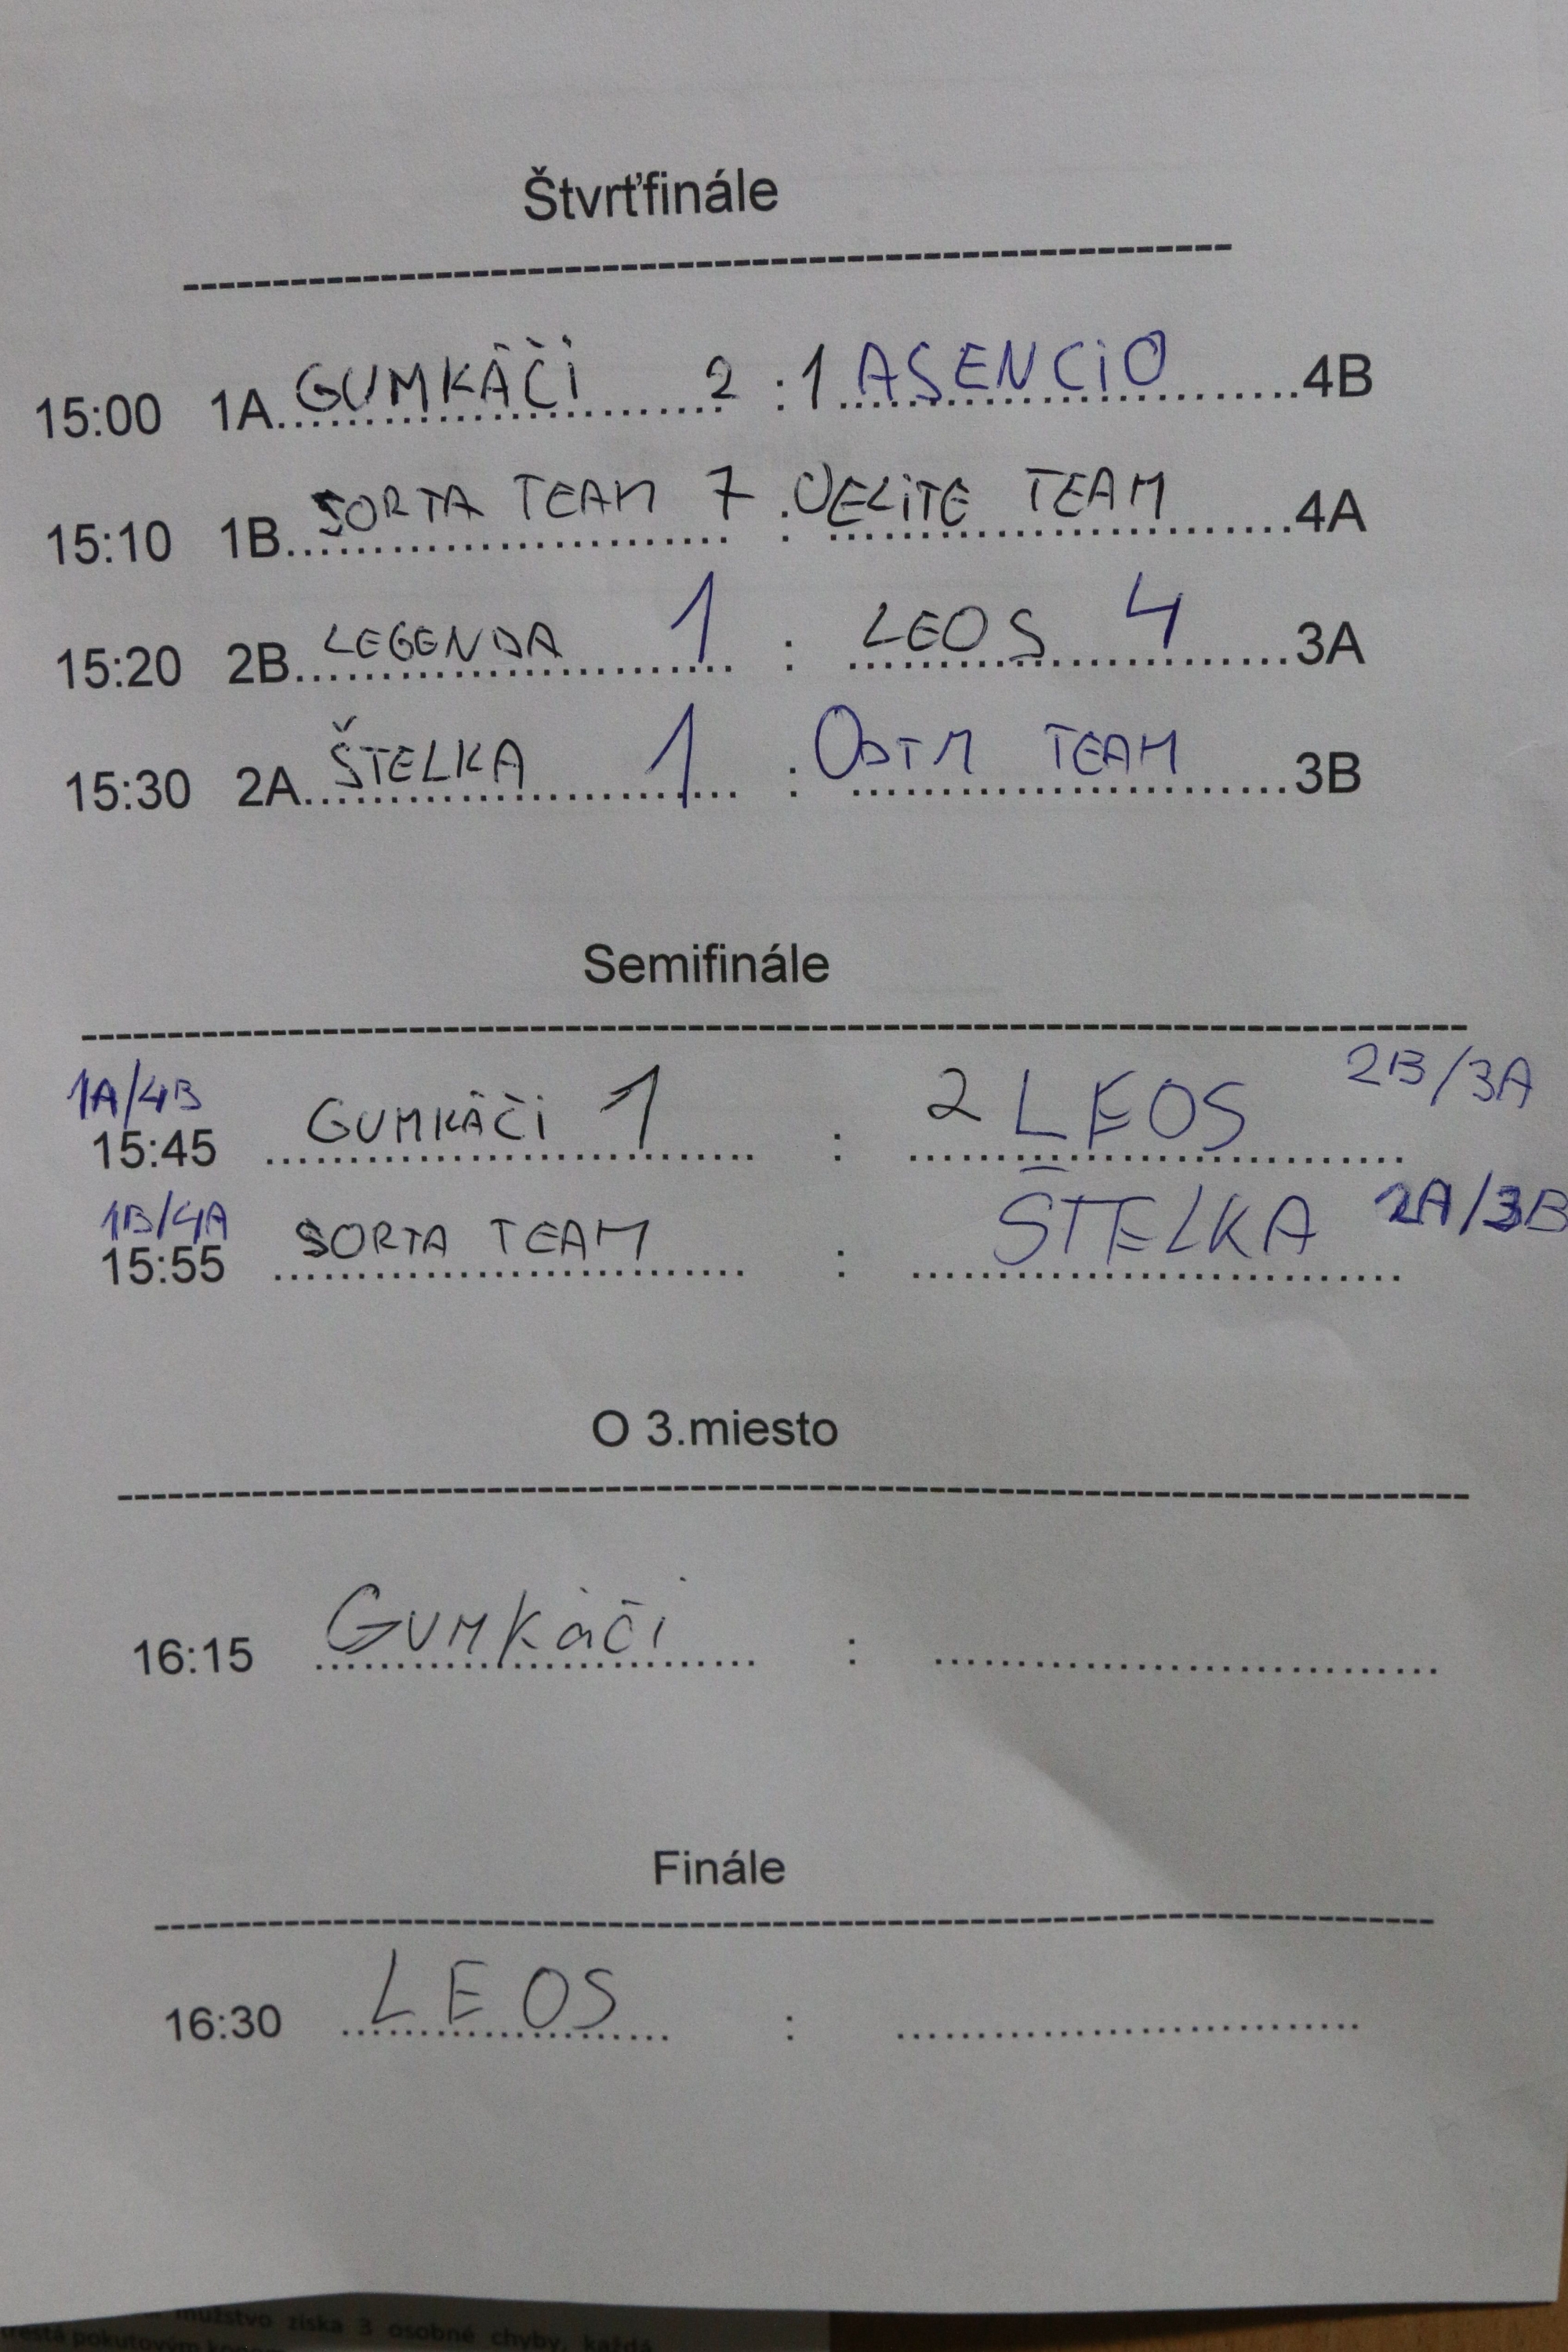 Štvrťfinále
15:00 1A GUMKÁČI 2 : 1 ASENCIO 4B
15:10 1B SORTA TEAM 7 : 0 ELITE TEAM 4A
15:20 2B LEGENDA 1 : LEOS 4 3A
15:30 2A ŠTELKA 1 : 0 DTM TEAM 3B
Semifinále
1A/4B 2B/3A
15:45 GUMKÁČI 1 : 2 LEOS
1B/4A 2A/3B
15:55 SORTA TEAM : ŠTELKA
O 3.miesto
16:15 Gumkáči :
Finále
16:30 LEOS :
mužstvo získa 3 osobné chyby, každá
pokutovým